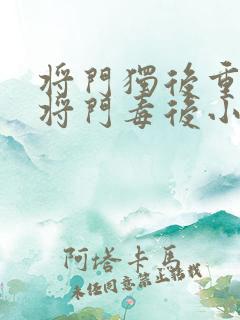 將門獨後重
將門毒後小
阿塔卡馬
未经同意禁止转载